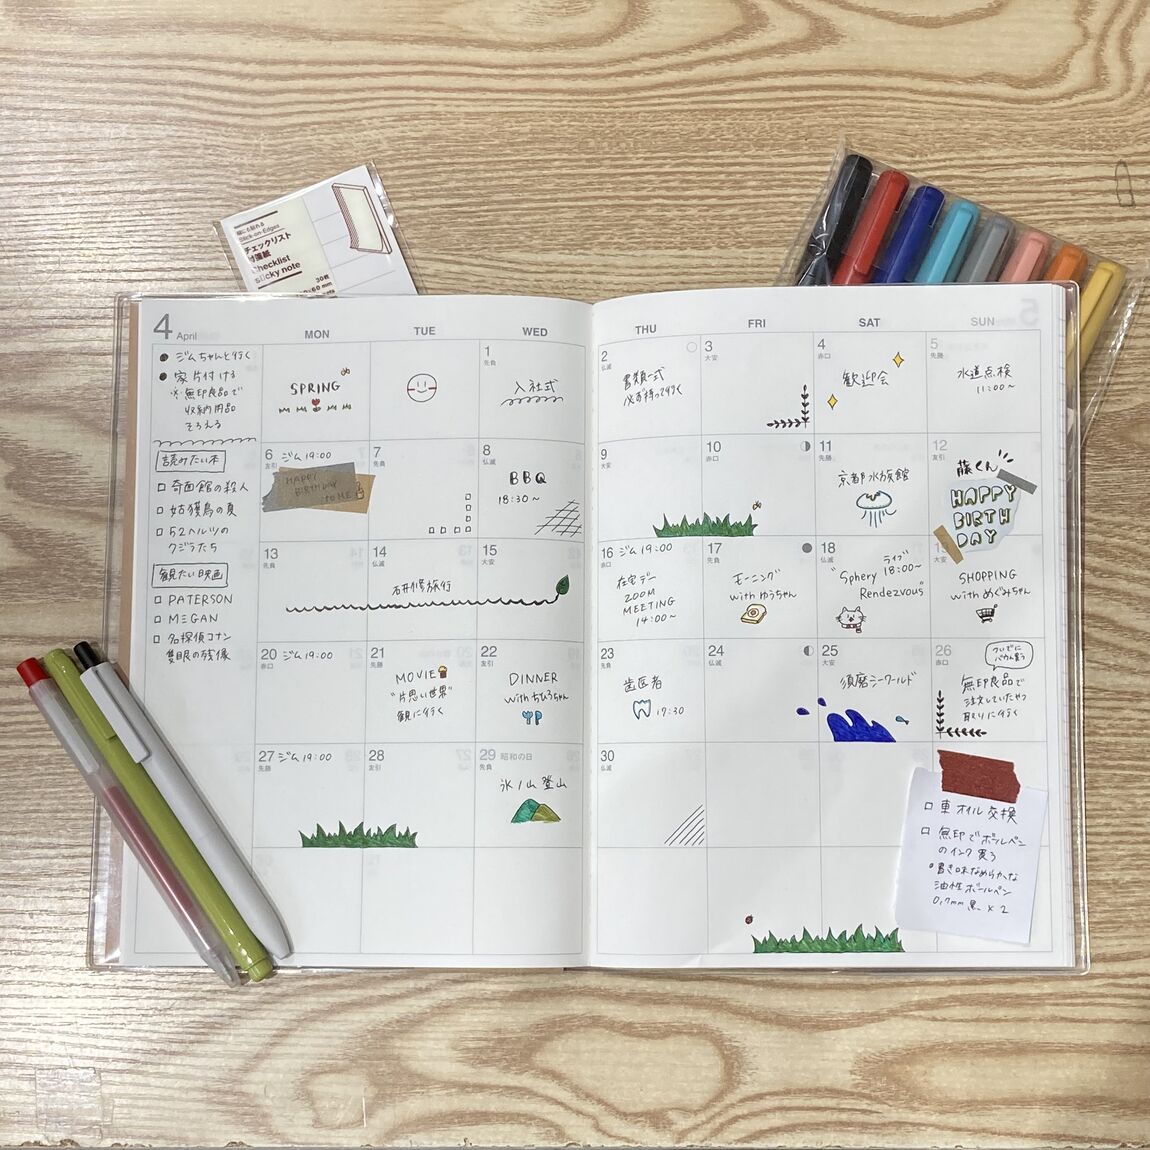 幅にも貼れる
Stick-on-Edges
チェックリスト
付箋紙
Checklist
sticky note
30枚
4 April
MON
TUE
WED
THU
FRI
SAT
SUN
ジムちゃんと行く
家片付ける
※無印良品で
収納用品
そろえる
読みたい本
奇面館の殺人
姑獲鳥の夏
52ヘルツの
クジラたち
観たい映画
PATERSON
M3GAN
名探偵コナン
隻眼の残像
SPRING
1
先負
入社式
2
仏滅
書類一式
必ず持って行く
3
大安
4
赤口
歓迎会
5
先勝
水道点検
11:00~
6 ジム 19:00
友引
HAPPY
BIRTHDAY
TO ME
7
先負
8
仏滅
BBQ
18:30~
9
大安
10
赤口
11
先勝
京都水族館
12
友引
藤くん
HAPPY
BIRTH
DAY
13
先負
14
仏滅
15
大安
研修旅行
16 ジム 19:00
赤口
在宅デー
ZOOM
MEETING
14:00~
17
先勝
モーニング
with ゆうちゃん
18
仏滅
ライブ
18:00~
"Sphery
Rendezvous"
19
大安
SHOPPING
with めぐみちゃん
20 ジム 19:00
赤口
21
先勝
MOVIE
"片思い世界"
観に行く
22
友引
DINNER
with ちひろちゃん
23
先負
歯医者
17:30
24
仏滅
25
大安
須磨シーワールド
26
赤口
ついでに
バウム買う
無印良品で
注文していたやつ
取りに行く
27 ジム 19:00
先勝
28
友引
29 昭和の日
先負
氷ノ山登山
30
仏滅
車オイル交換
無印でボールペン
のインク買う
・書き味なめらかな
油性ボールペン
0.7mm 黒 × 2